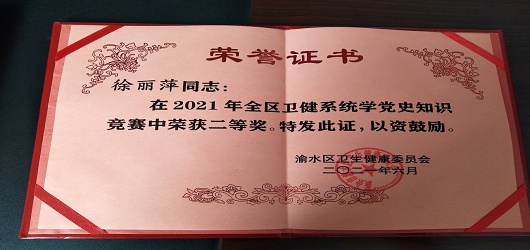 荣誉证书
徐丽萍同志：
在2021年全区卫健系统学党史知识
竞赛中荣获二等奖。特发此证，以资鼓励。
渝水区卫生健康委员会
二〇二一年六月